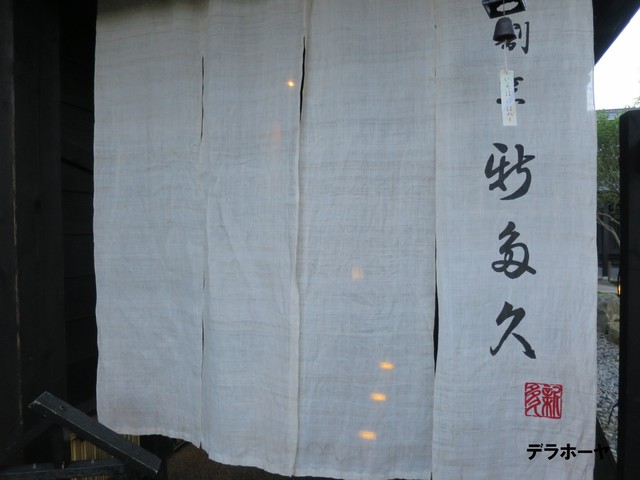 割烹 新多久
新多
デラホーヤ